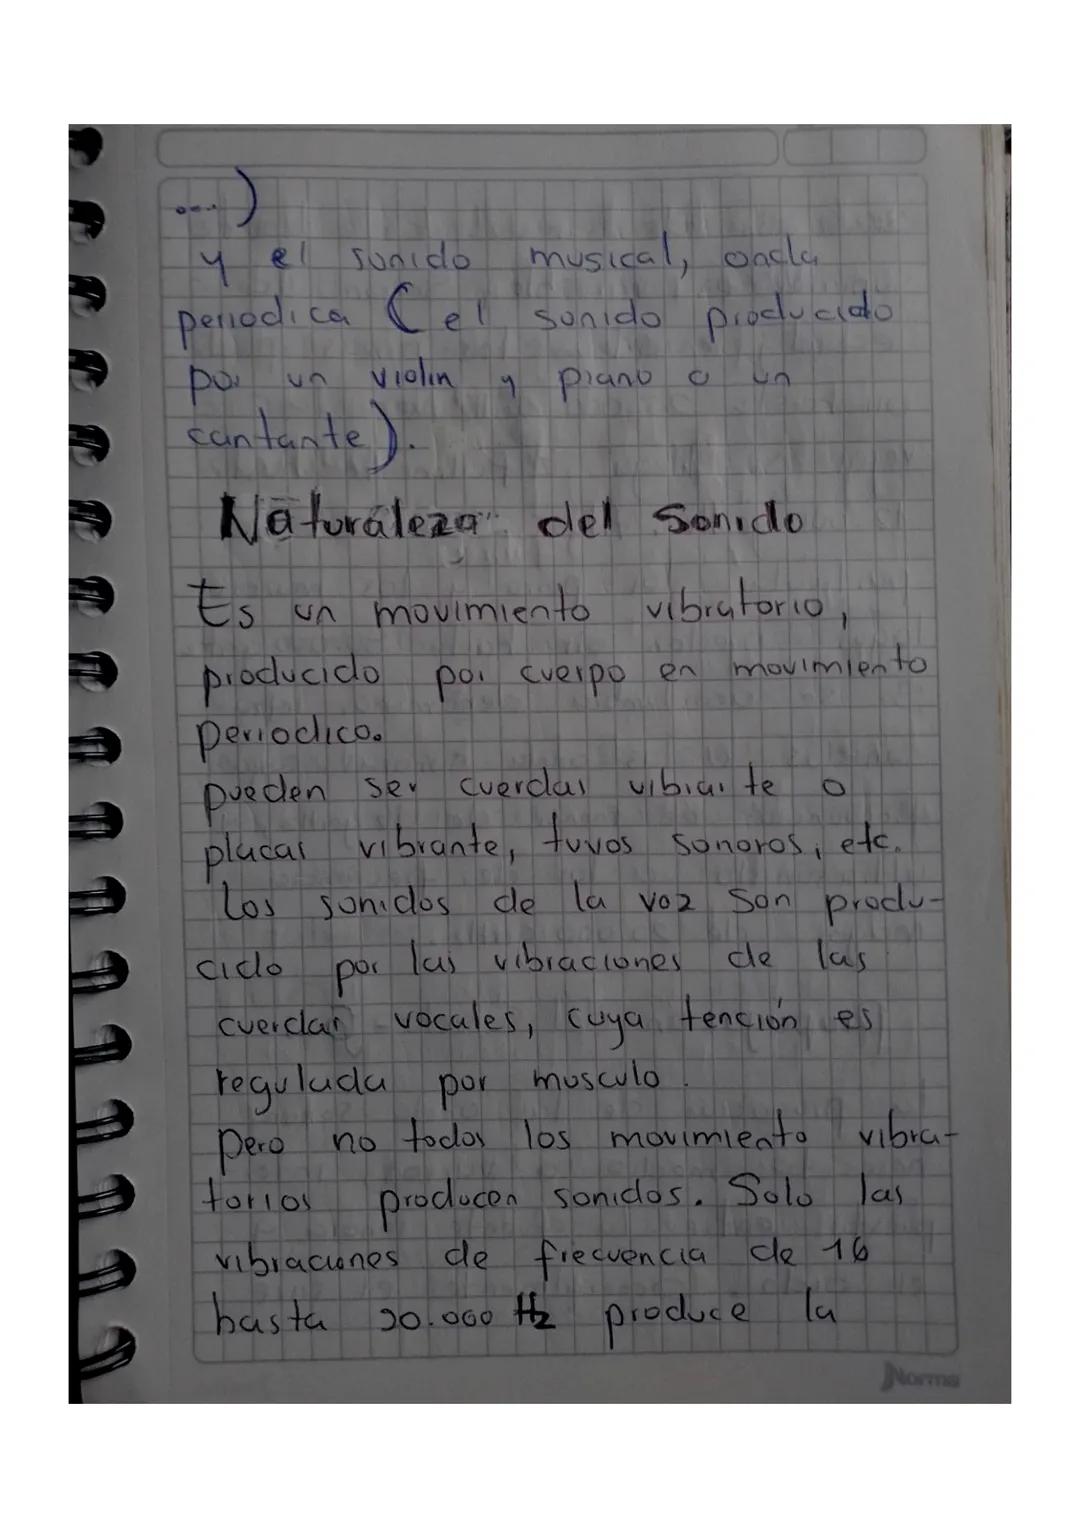 ...)
y el sonido musical, onda
periodica (el sonido producido
por un violin y piano o un
cantante).
Naturaleza del Sonido
Es un movimiento vibratorio,
producido por cuerpo en movimiento
periodico.
pueden ser cuerdas vibrante o
placas vibrante, tuvos sonoros, etc.
Los sonidos de la voz son produ-
cido por las vibraciones de las
cuerdas vocales, cuya tención es
regulada por musculo.
pero no todos los movimiento vibra-
torios producen sonidos. Solo las
vibraciones de frecuencia de 16
hasta 20.000 Hz produce la
Norma